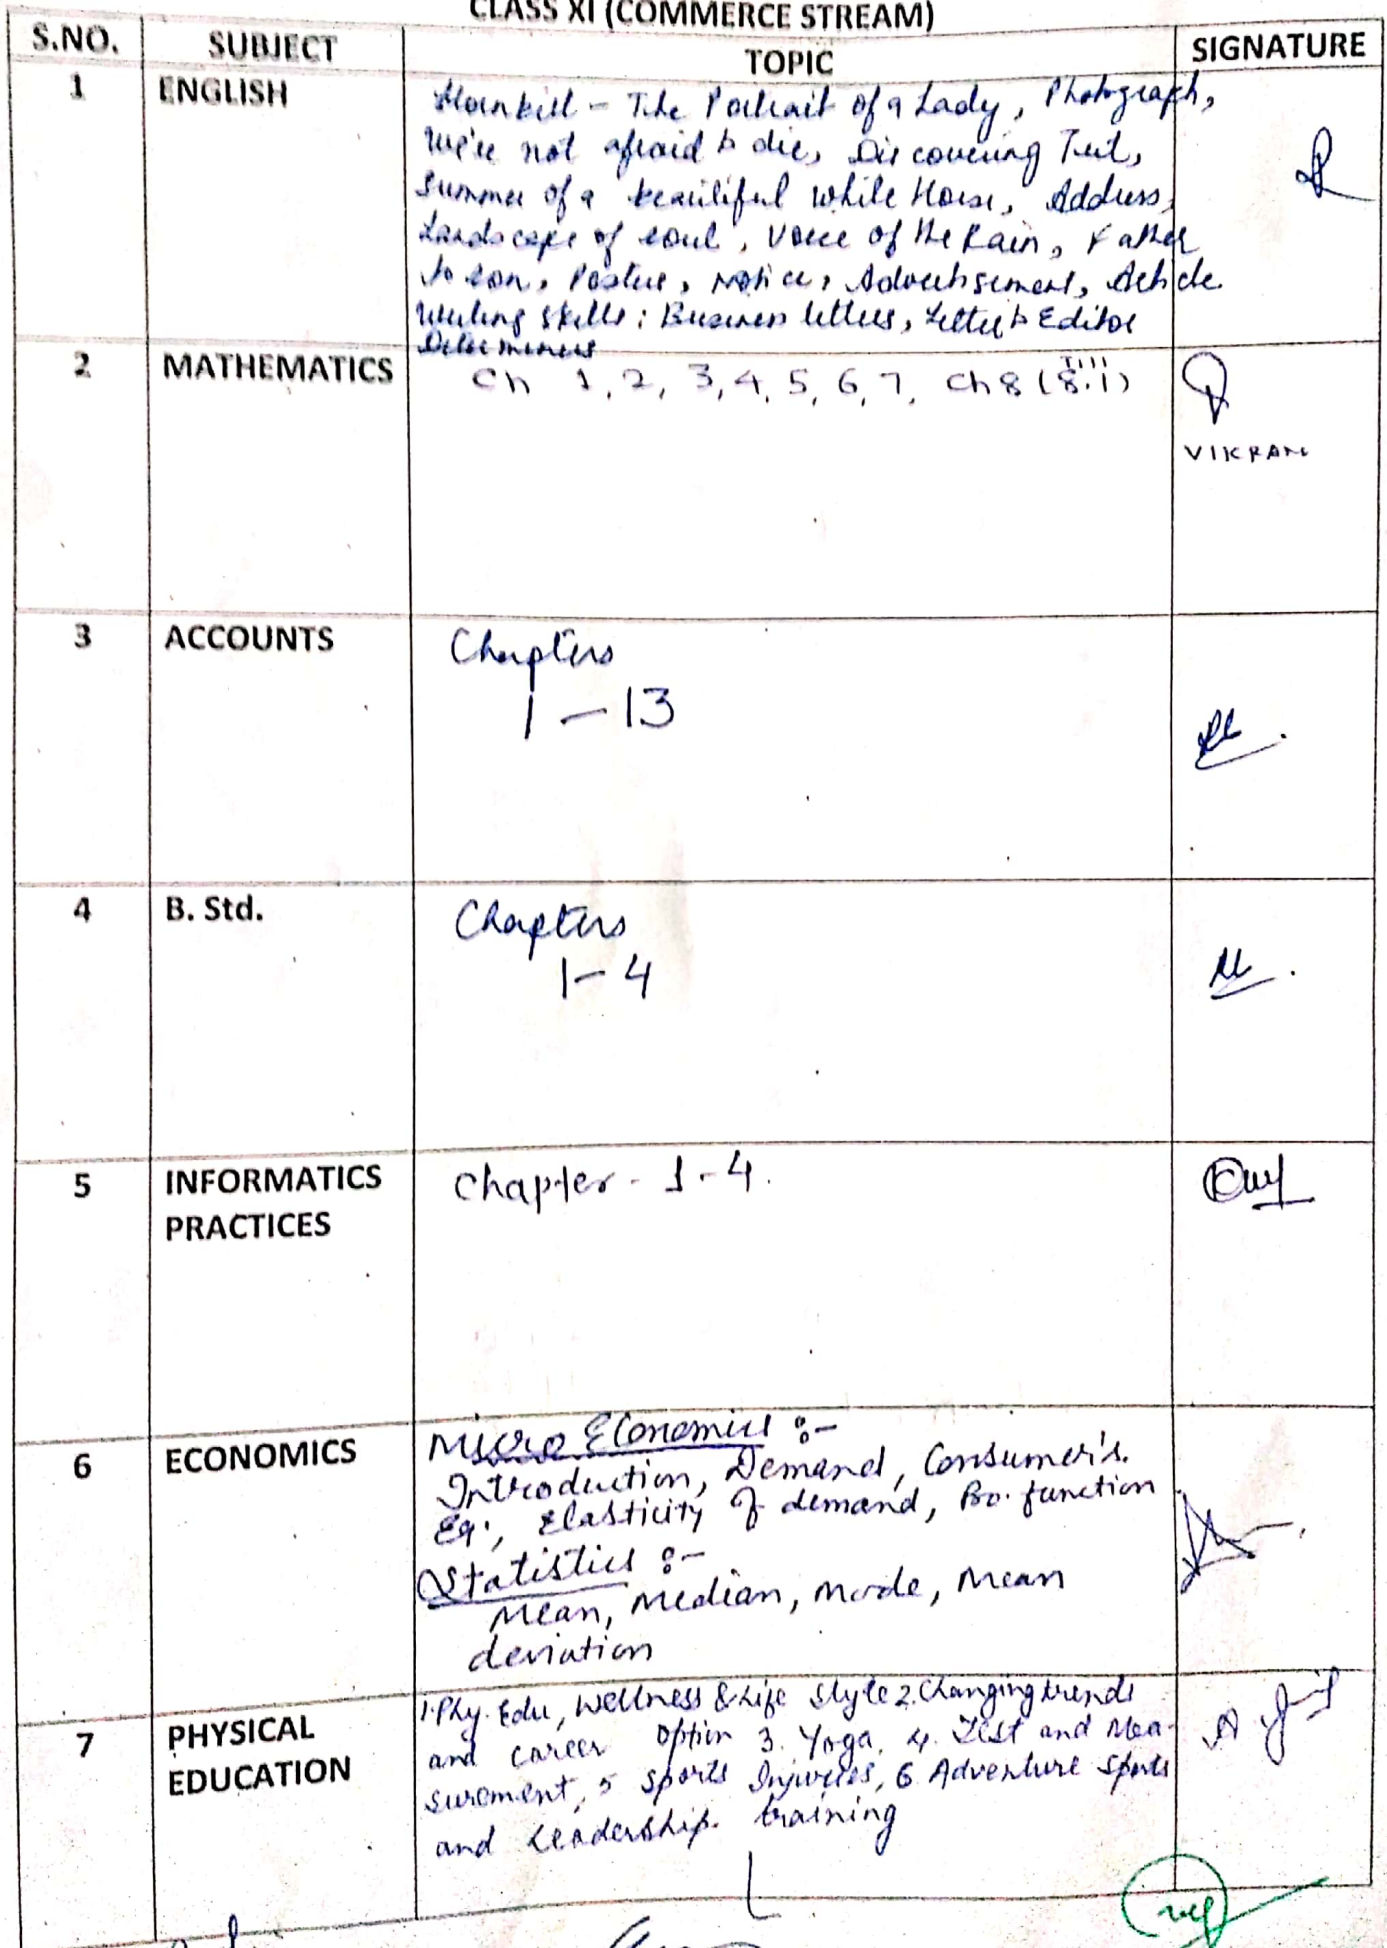 CLASS XI (COMMERCE STREAM)
S.NO. SUBJECT TOPIC SIGNATURE
1 ENGLISH Hornbill - The Portrait of a Lady, Photograph,
We're not afraid to die, Discovering Tut,
Summer of a beautiful white Horse, Address,
Landscape of soul, Voice of the Rain, Father
to son, Poster, Notice, Advertisement, Article
Writing skills: Business letters, Letter to Editor
Determiners
2 MATHEMATICS Ch 1, 2, 3, 4, 5, 6, 7, Ch 8 (Till 8.1)
VIKRAM
3 ACCOUNTS Chapters
1 - 13
4 B. Std. Chapters
1 - 4
5 INFORMATICS PRACTICES Chapter - 1 - 4.
6 ECONOMICS Micro Economics :-
Introduction, Demand, Consumer's.
Eq., Elasticity of demand, Pro. function
Statistics :-
Mean, Median, Mode, Mean
deviation
7 PHYSICAL EDUCATION 1. Phy. Edu, Wellness & Life Style 2. Changing trends
and career option 3. Yoga, 4. Test and Mea-
surement, 5 sports Injuries, 6 Adventure sports
and Leadership. training